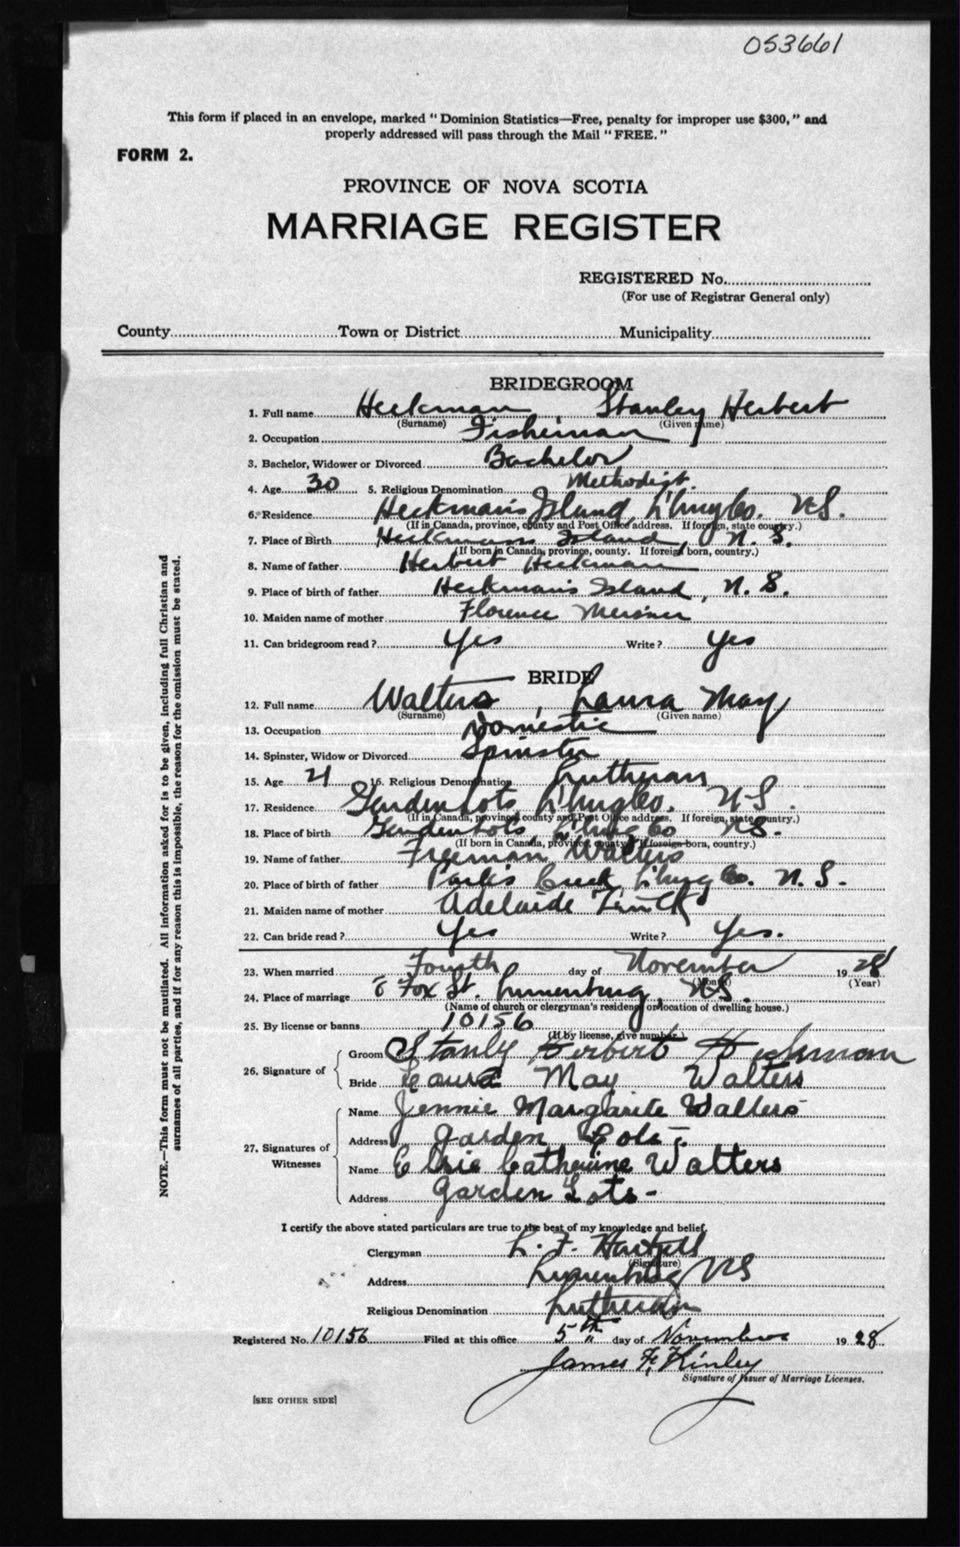 053661
This form if placed in an envelope, marked "Dominion Statistics—Free, penalty for improper use $300," and
properly addressed will pass through the Mail "FREE."
FORM 2.
PROVINCE OF NOVA SCOTIA
MARRIAGE REGISTER
REGISTERED No.
(For use of Registrar General only)
County Town or District Municipality
BRIDEGROOM
1. Full name Heckman, Stanley Herbert
(Surname) (Given name)
2. Occupation Fisherman
3. Bachelor, Widower or Divorced Bachelor
4. Age 30 5. Religious Denomination Methodist.
6. Residence Heckman's Island, L'burg Co. N.S.
(If in Canada, province, county and Post Office address. If foreign, state country.)
7. Place of Birth Heckmans Island, N.S.
(If born in Canada, province, county. If foreign born, country.)
8. Name of father Herbert Heckman
9. Place of birth of father Heckman's Island, N.S.
10. Maiden name of mother Florence Meisner
11. Can bridegroom read? Yes Write? Yes
BRIDE
12. Full name Walters, Laura May
(Surname) (Given name)
13. Occupation Domestic
14. Spinster, Widow or Divorced Spinster
15. Age 21 16. Religious Denomination Lutheran
17. Residence Garden Lots L'burg Co. N.S.
(If in Canada, province, county and Post Office address. If foreign, state country.)
18. Place of birth Garden Lots, L'burg Co N.S.
(If born in Canada, province, county. If foreign born, country.)
19. Name of father Freeman Walters
20. Place of birth of father Park's Creek, L'burg Co. N.S.
21. Maiden name of mother Adelaide Tinck
22. Can bride read? Yes Write? Yes.
23. When married Fourth day of November 19 28
(Month) (Year)
24. Place of marriage Fox St. Lunenburg, N.S.
(Name of church or clergyman's residence or location of dwelling house.)
25. By license or banns 10156
(If by license, give number.)
26. Signature of
Groom Stanly Herbert Heckman
Bride Laura May Walters
27. Signatures of Witnesses
Name Jennie Margarite Walters
Address Garden Lots.
Name Elsie Catherine Walters
Address Garden Lots-
I certify the above stated particulars are true to the best of my knowledge and belief.
Clergyman L. F. Hartzell
(Signature)
Address Lunenburg N S
Religious Denomination Lutheran
Registered No. 10156 Filed at this office 5th day of November 19 28
James F. Kinley
Signature of Issuer of Marriage Licenses.
[SEE OTHER SIDE]
NOTE.—This form must not be mutilated. All information asked for is to be given, including full Christian and
surnames of all parties, and if for any reason this is impossible, the reason for the omission must be stated.